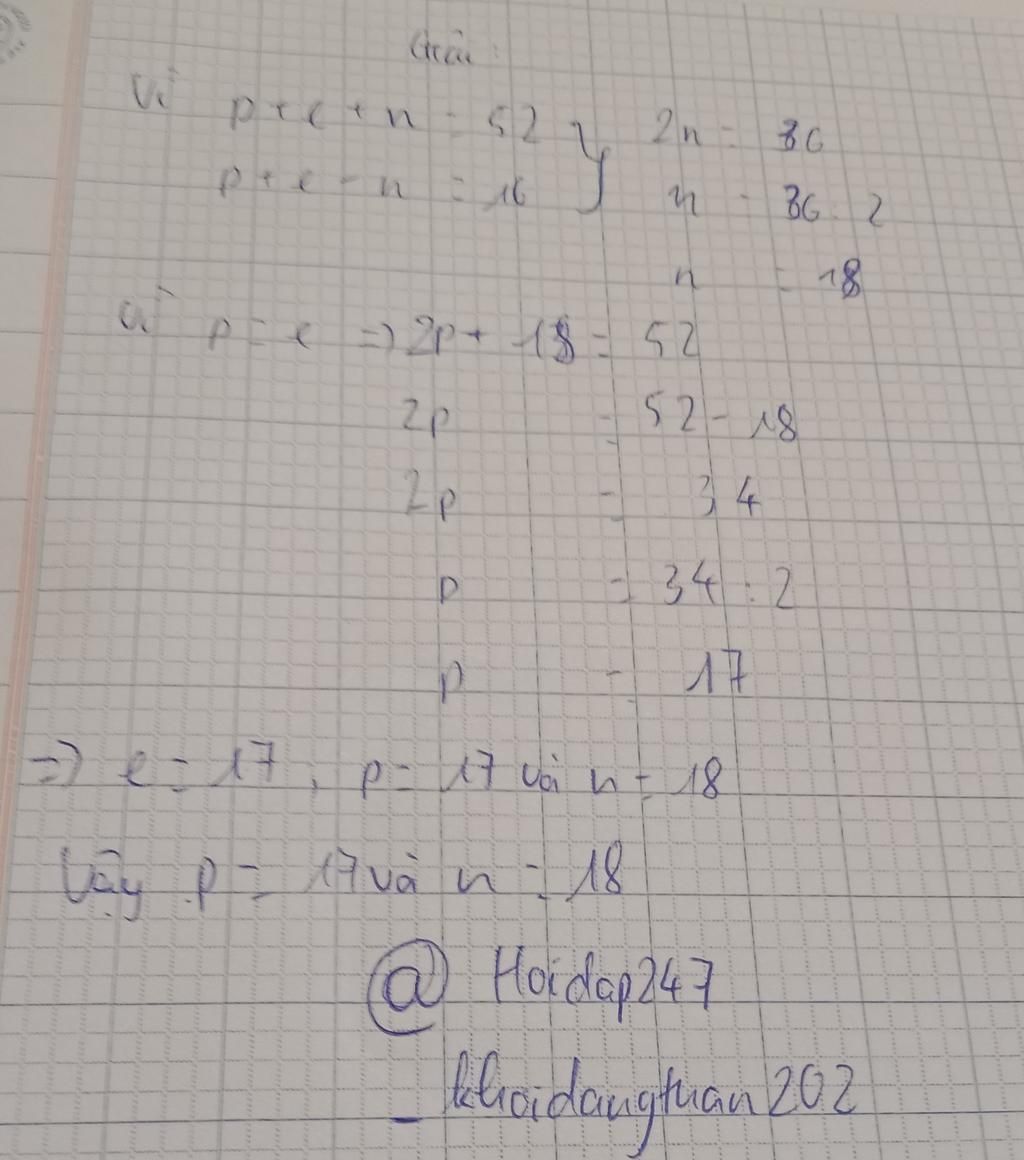 Giải:
Vì p + e + n = 52 } 2n = 36
p + e - n = 16 n = 36 : 2
n = 18
Vì p = e => 2p + 18 = 52
2p = 52 - 18
2p = 34
p = 34 : 2
p = 17
=> e = 17, p = 17 và n = 18
Vậy p = 17 và n = 18
@ Hoidap247
_ khoidangtuan202